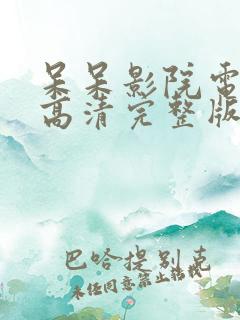 呆呆影院電
高清完整版
巴哈提别克
未任同意禁止转载